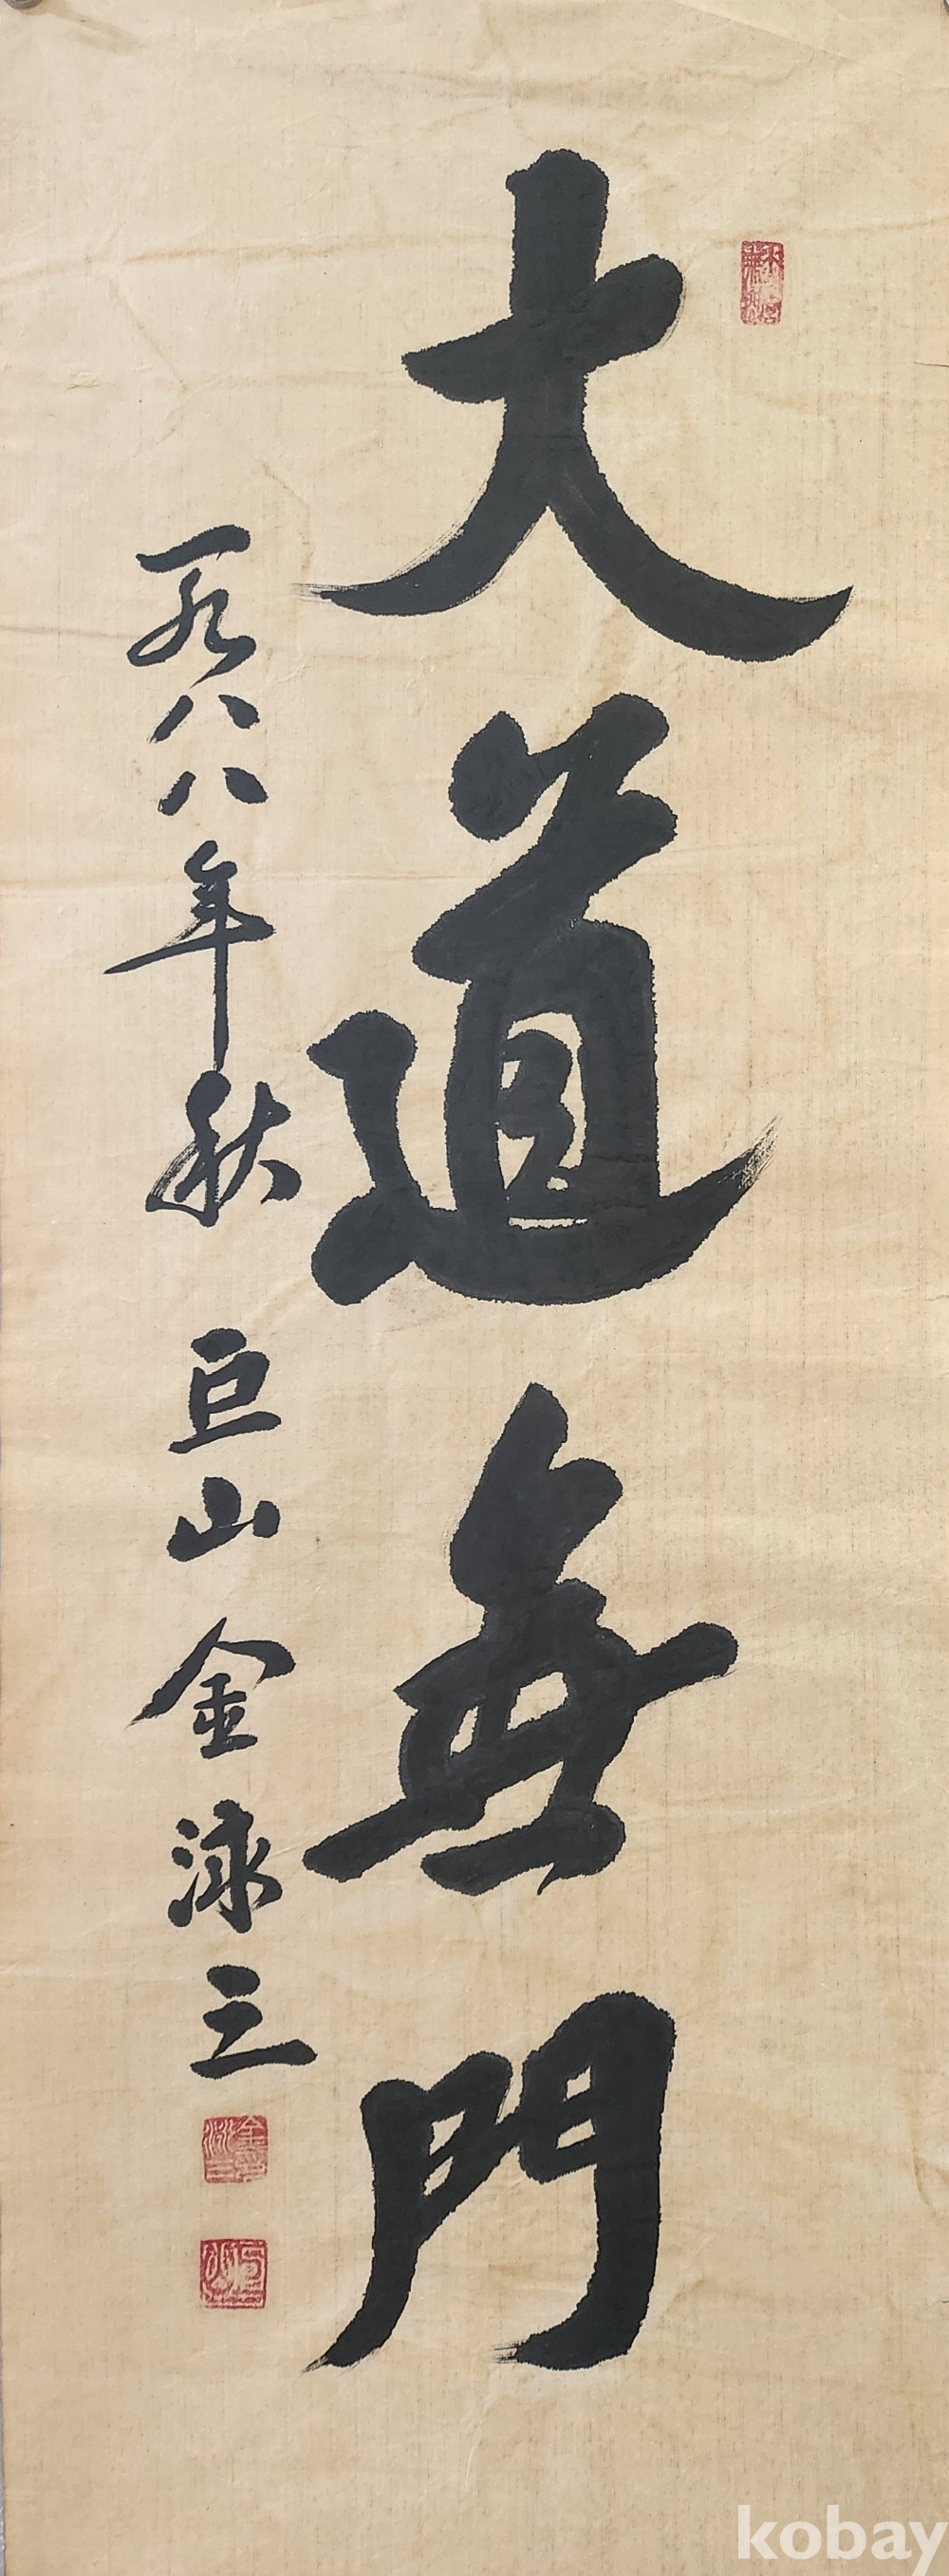 大道無門
一九八八年秋 巨山 金泳三
金泳三
kobay